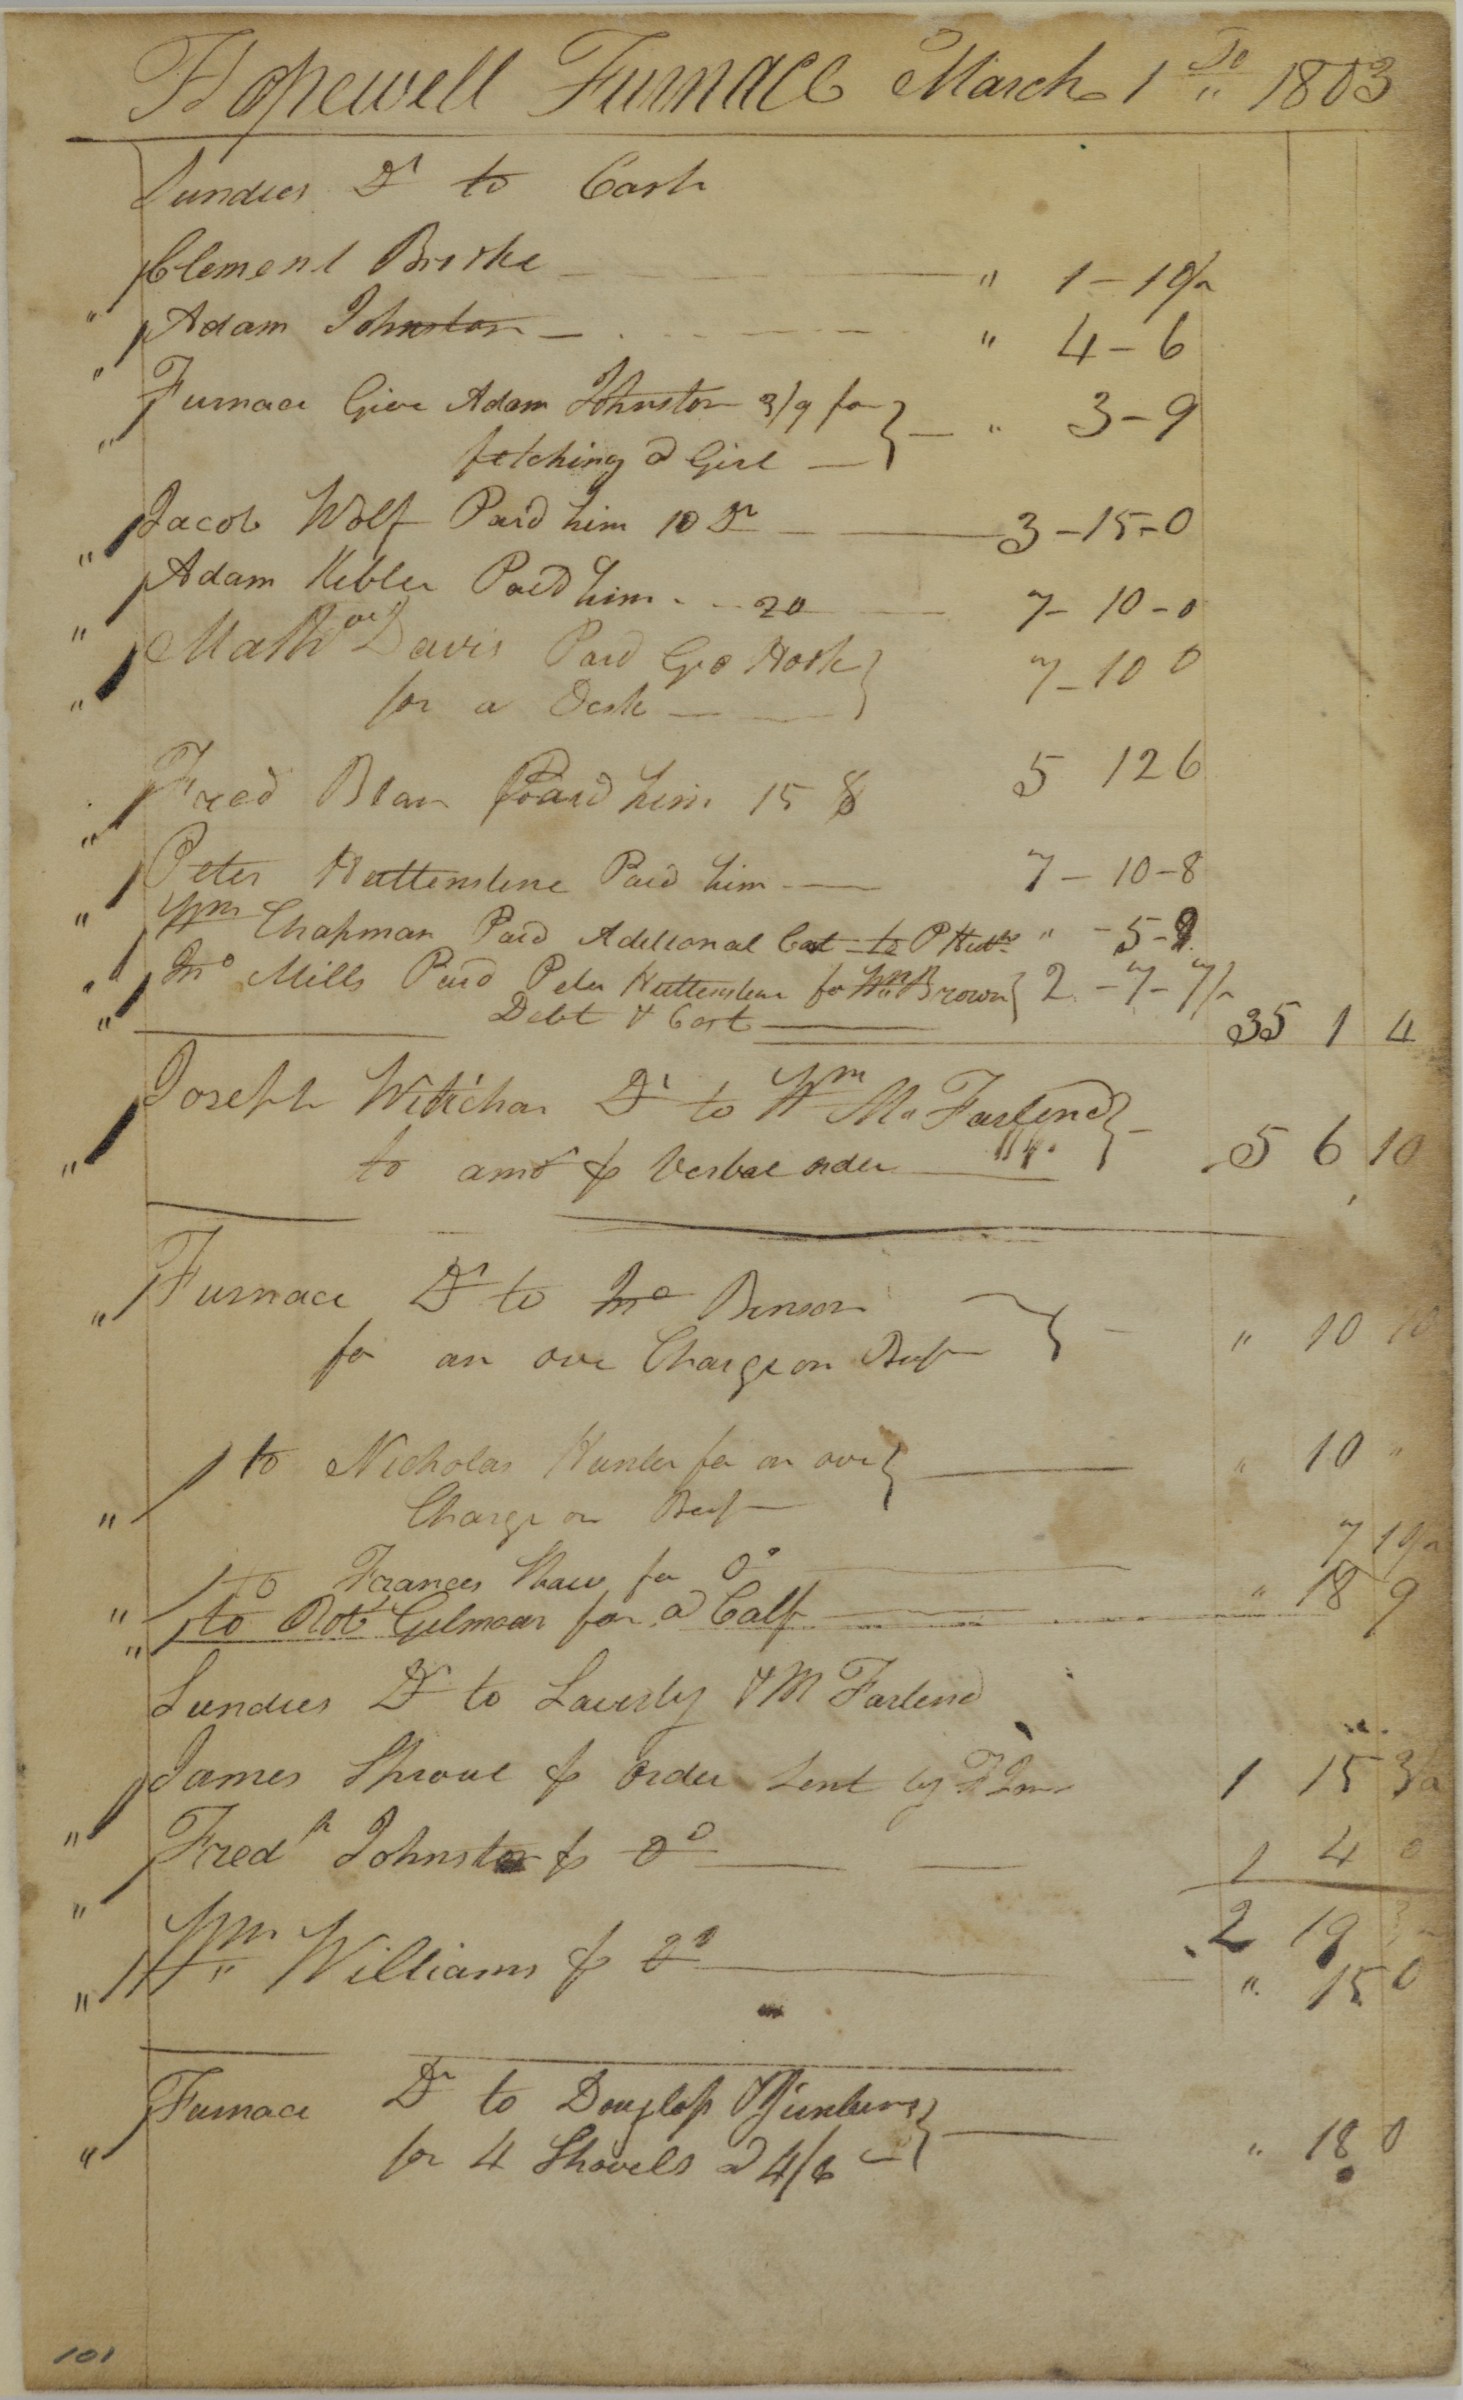 Hopewell Furnace March 1st 1803
Sundies Dr to Cash
Clement Brooke " 1-10½
" Adam Johnston " 4-6
" Furnace Give Adam Johnston 3/9 for " 3-9
" fetching a Girl
Jacob Wolf Paid him 10 Dr 3-15-0
" Adam Kebler Paid him 20 7-10-0
" Davis Paid Geo Hook 7-10 0
" for a Desk
Fred Blan Paid him 15 $ 5 12 6
"
Peter Huttenstine Paid him 7-10-8
" Wm Chapman Paid Aditional Cost to P Hutt " -5-9
" Jno Mills Paid Peter Huttenstine for Wm Brown 2-7-7½
" Debt & Cost 35 1 4
Joseph Dr to Wm Mc Farlend
" to amot pr Verbal order 5 6 10
Furnace Dr to Jno Benson
" for an over Charge on Beef " 10 10
to Nicholas Hunter for an over " 10 "
" Charge on Beef
to Frances Shaw for Do 7 10½
" to Robt Gilmoar for a Calf " 18 9
"
Sundies Dr to Laverty & Mc Farlend
James Sproul pr order sent by 1 15 3½
" Fredk Johnston pr Do 1 4 0
" 2 19 3
Wm Williams pr Do " 15 0
"
Furnace Dr to Douglass &
" for 4 Shovels a 4/6 " 18 0
101